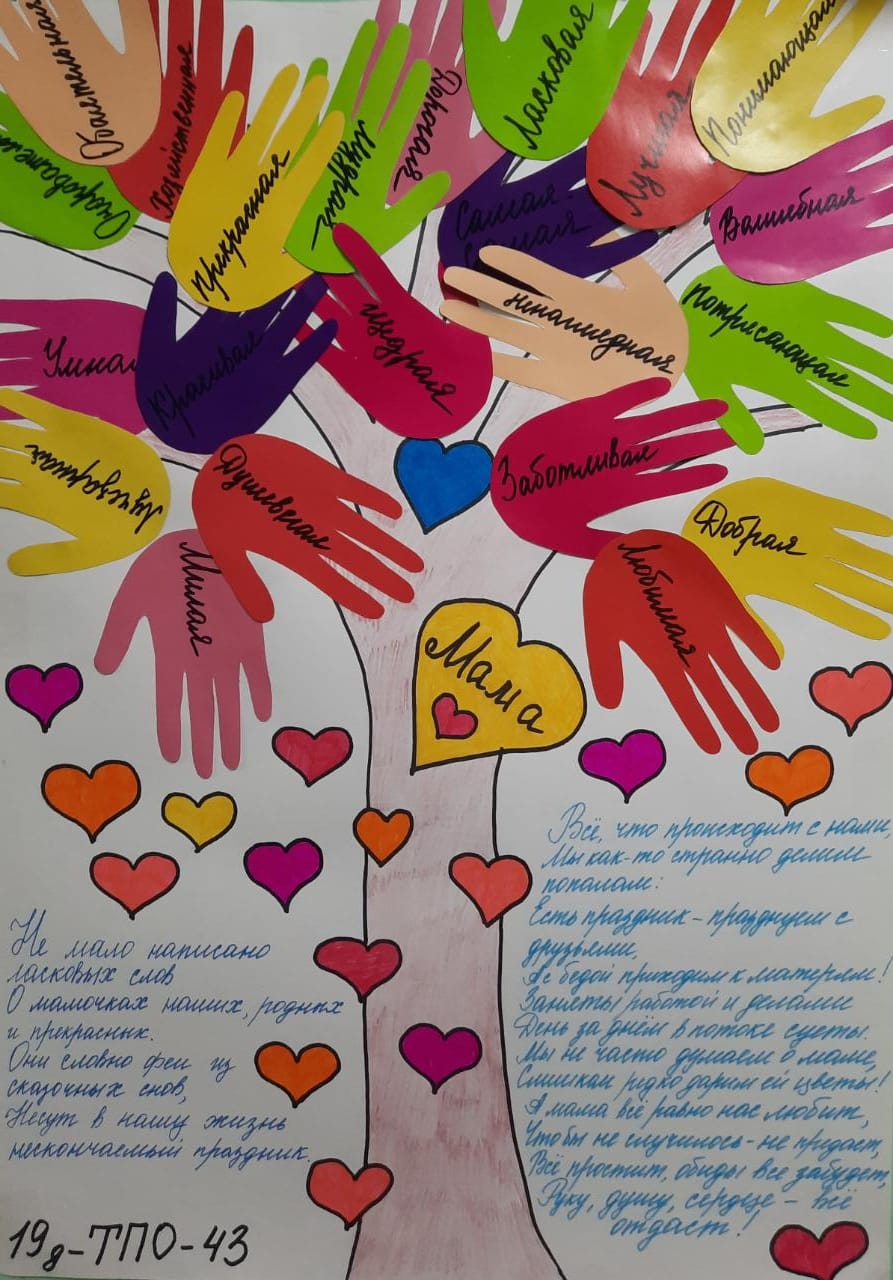 Обаятельная
Хозяйственная
Очаровательная
Прекрасная
Мудрая
Дорогая
Ласковая
Лучшая
Понимающая
Самая-
самая
Волшебная
Умная
Красивая
щедрая
ненаглядная
Потрясающая
Лучезарная
Душевная
Заботливая
Добрая
Милая
Любимая
Мама
Не мало написано
ласковых слов
О мамочках наших, родных
и прекрасных.
Они словно феи из
сказочных снов,
Несут в нашу жизнь
нескончаемый праздник.
Всё, что происходит с нами,
Мы как-то странно делим
пополам:
Есть праздник - празднуем с
друзьями,
А с бедой приходим к матерям!
Заняты работой и делами
День за днём в потоке суеты.
Мы не часто думаем о маме,
Слишком редко дарим ей цветы!
А мама всё равно нас любит,
Чтобы не случилось - не предаст,
Всё простит, обиды все забудет,
Руку, душу, сердце - всё
отдаст!
19д-ТПО-43